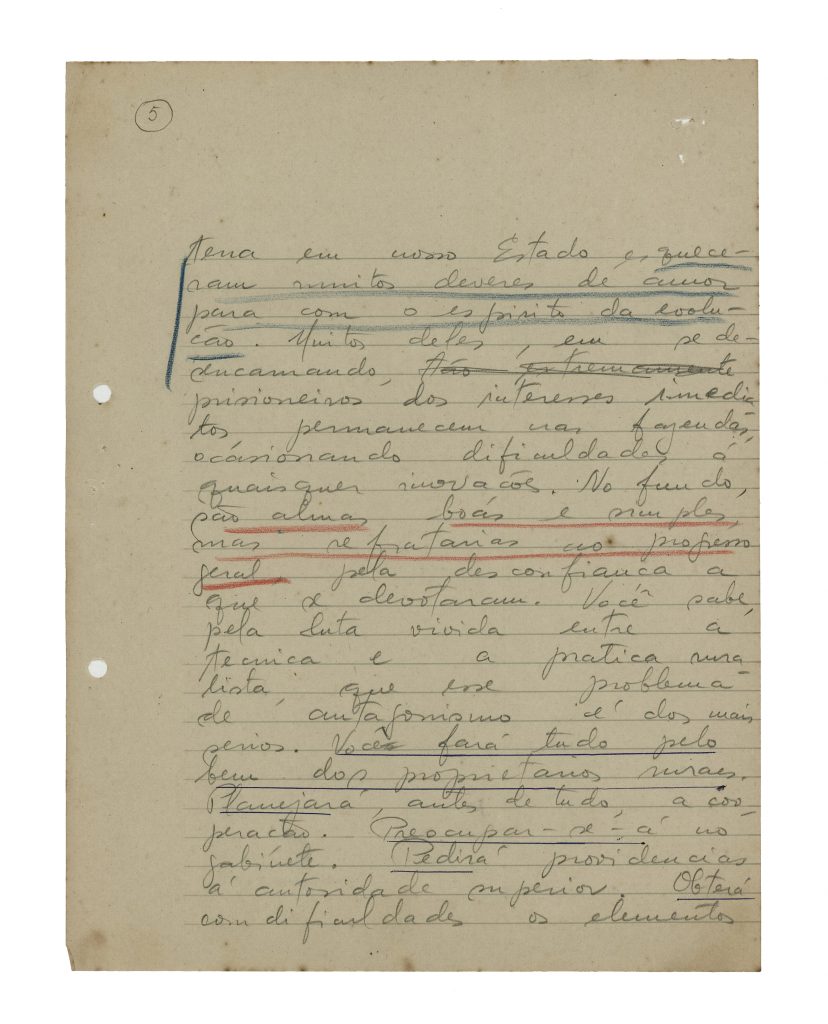 5
terra em nosso Estado esquece-
ram muitos deveres de amor
para com o espirito da evolu-
ção. Muitos deles, em se de-
sencarnando, tão extremamente
prisioneiros dos interesses imedia
tos permanecem nas fazendas,
ocasionando dificuldades á
quaisquer inovações. No fundo,
são almas boas e simples,
mas refratarias ao progresso
geral pela desconfiança a
que se devotaram. Você sabe,
pela luta vivida entre a
tecnica e a pratica rura
lista, que esse problema
de antagonismo é dos mais
serios. Você fará tudo pelo
bem dos proprietarios ruraes.
Planejará, antes de tudo, a coo
peração. Preocupar-se-á no
gabinete. Pedirá providencias
á autoridade superior. Obterá
com dificuldades os elementos